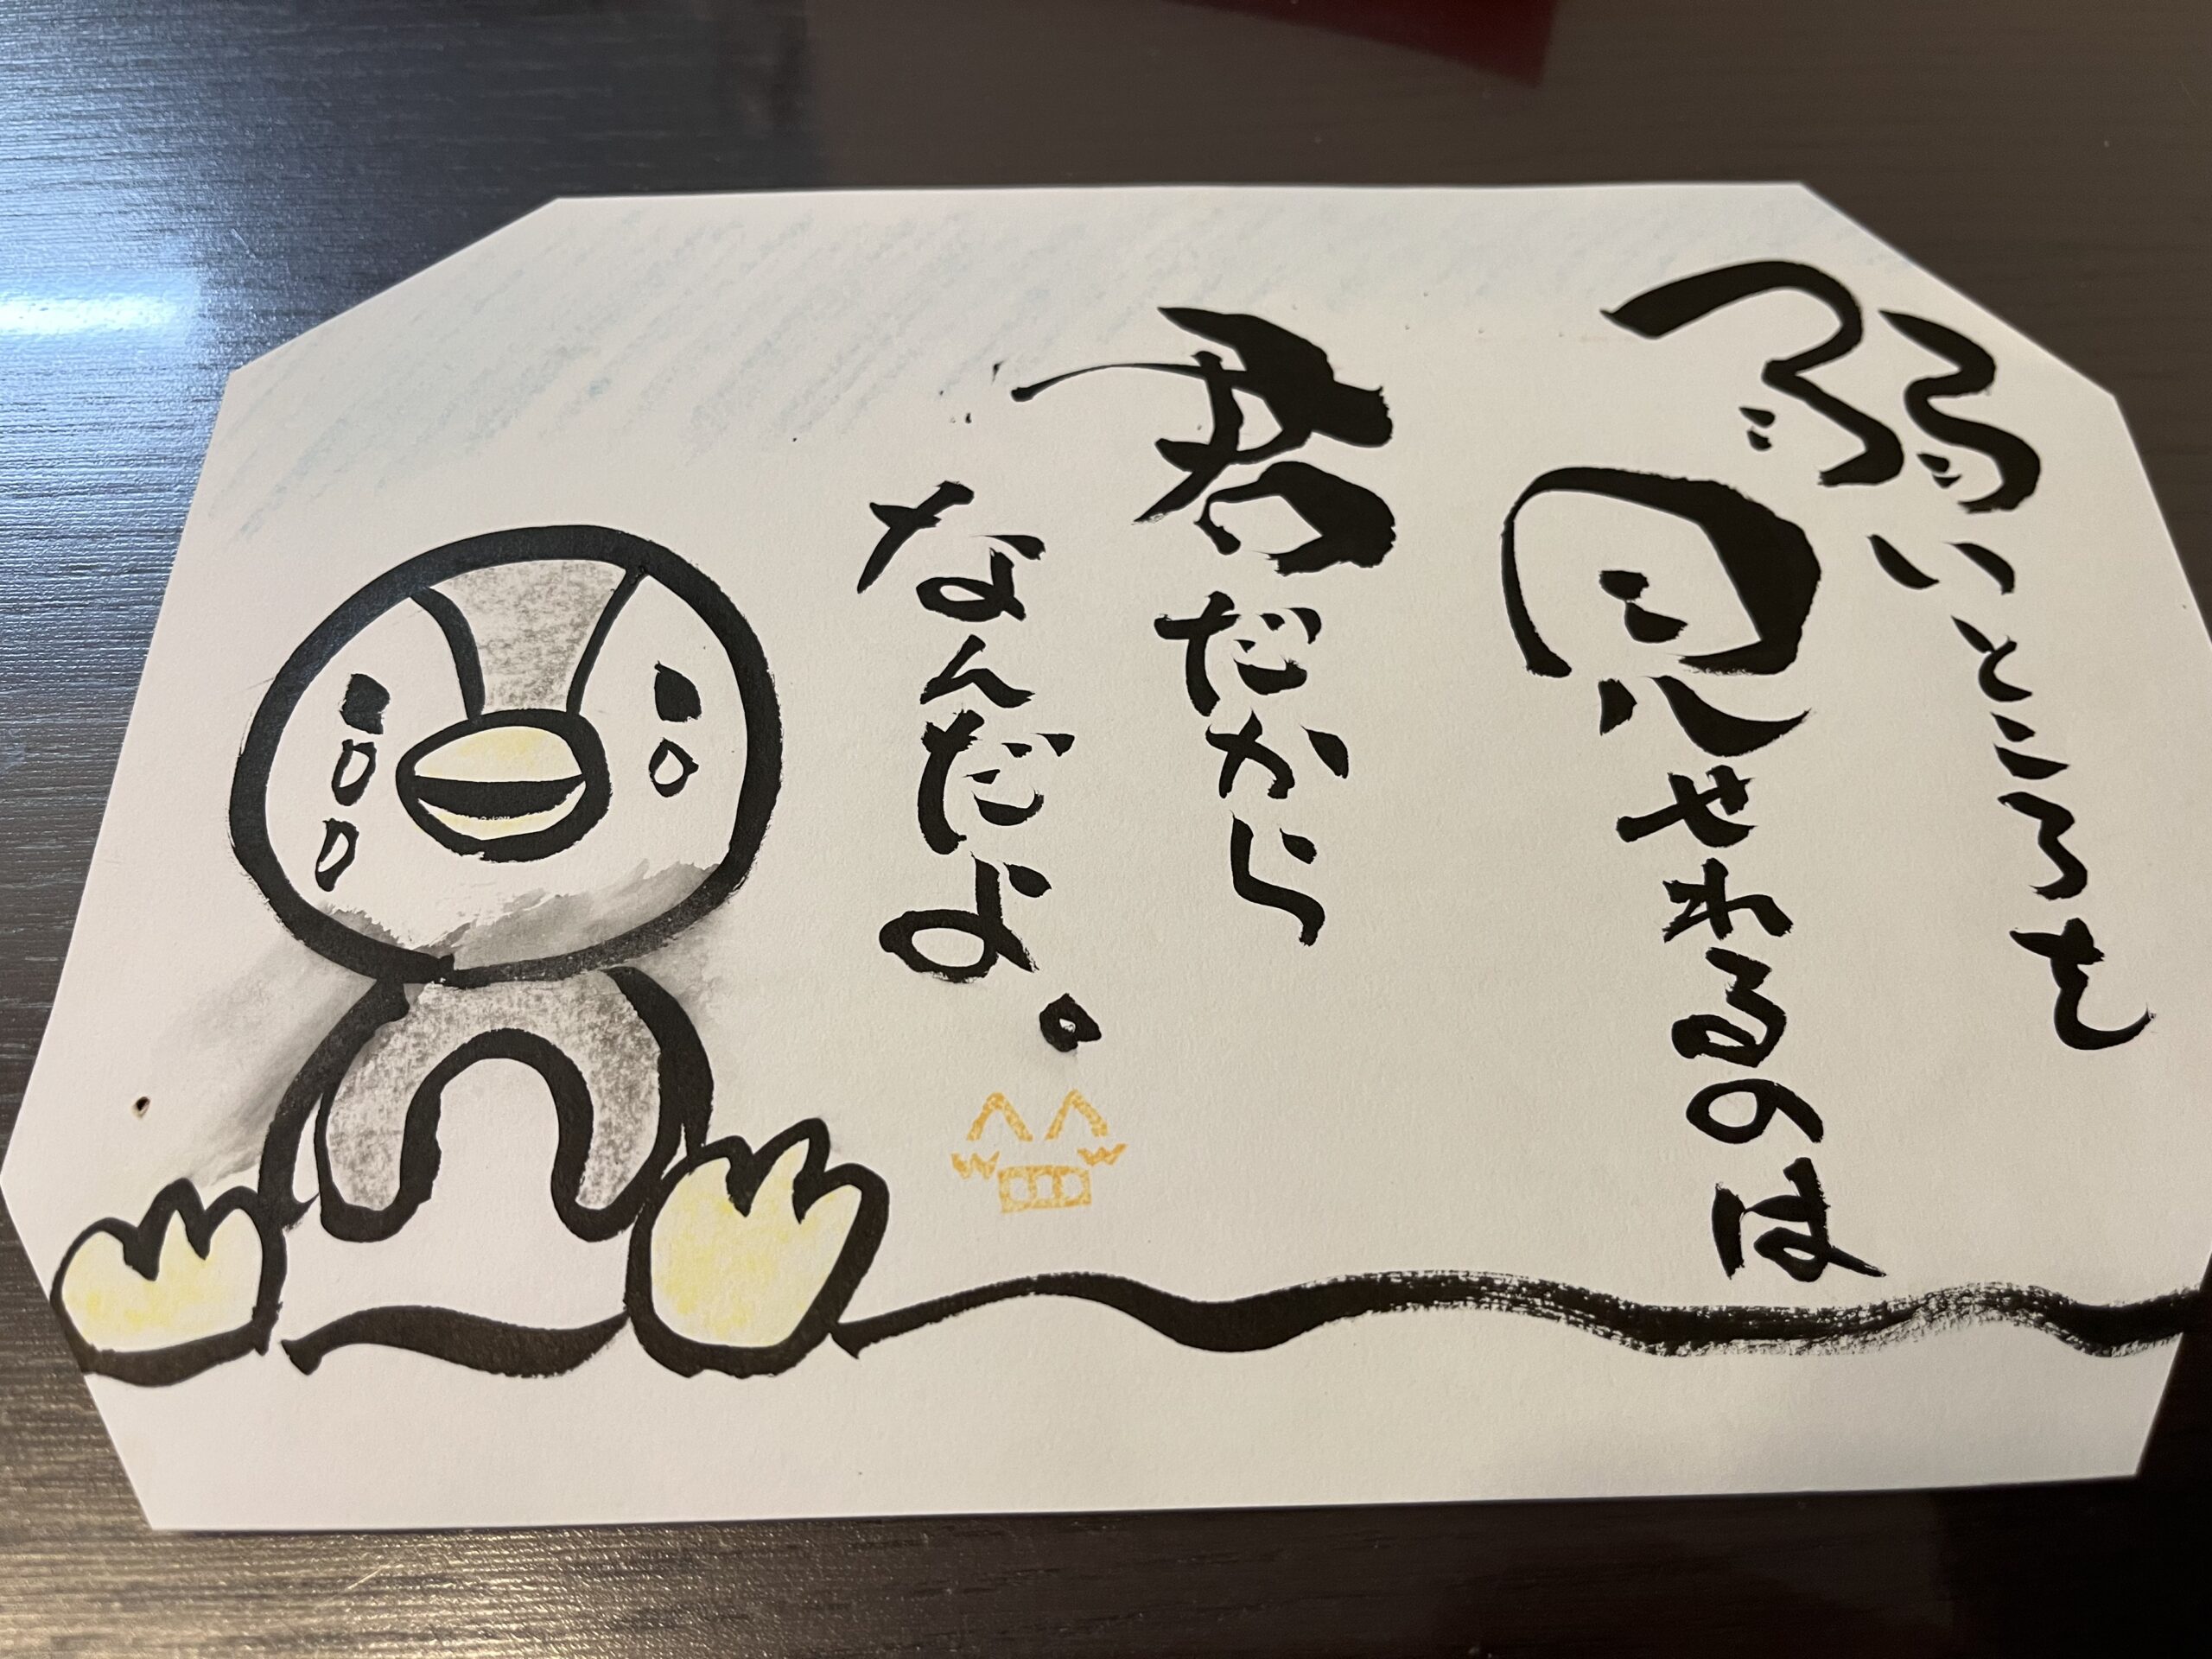 弱いところを
見せれるのは
君だから
なんだよ。